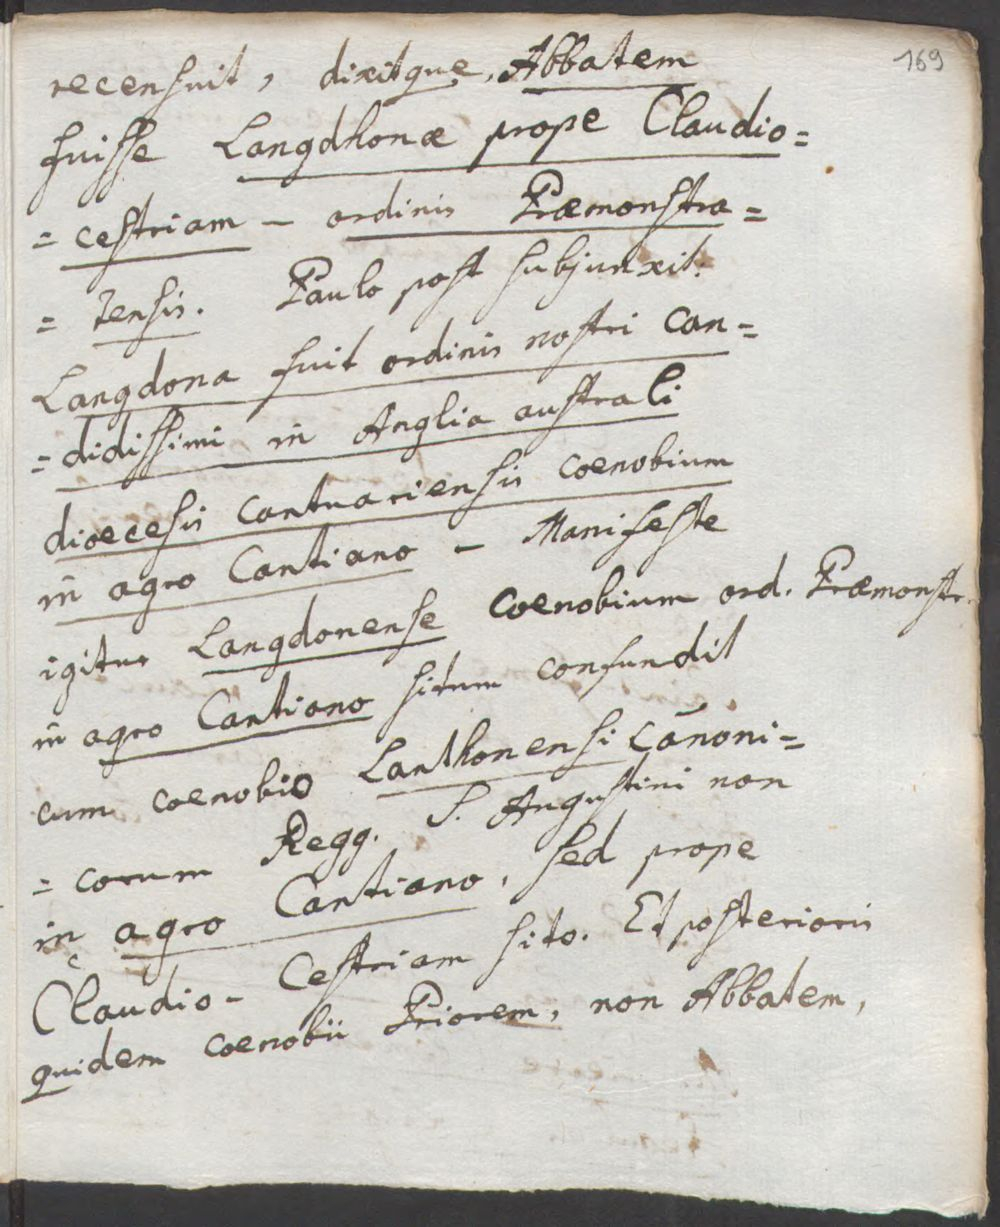 169
recensuit, dixitque, Abbatem
fuisse Langdhonæ prope Claudio=
= cestriam – ordinis Præmonstra=
= tensis. Paulo post subjunxit.
Langdona fuit ordinis nostri can=
= didissimi in Anglia australi
dioecesis Cantuariensis coenobium
in agro Cantiano – Manifeste
igitur Langdonense Coenobium ord. Præmonstr.
in agro Cantiano situm confundit
cum coenobio Lanthonensi Canoni=
= corum Regg. S. Augustini non
in agro Cantiano, sed prope
Claudio- Cestriam sito. Et posterioris
quidem coenobii Priorem, non Abbatem,